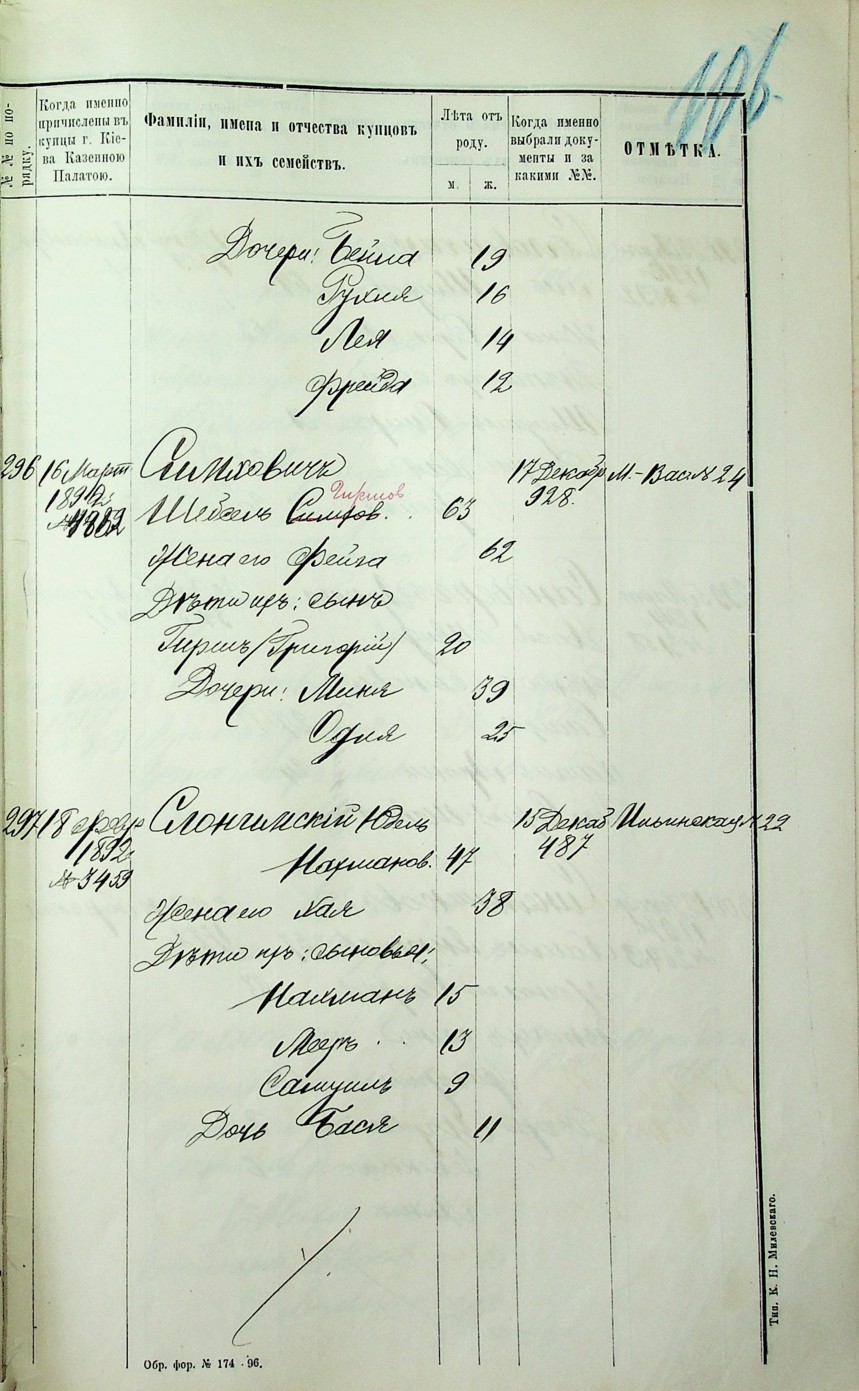 106.
№№ по по-
рядку.
Когда именно
причислены въ
купцы г. Кіе-
ва Казенною
Палатою.
Фамиліи, имена и отчества купцовъ
и ихъ семействъ.
Лѣта отъ
роду.
м. ж.
Когда именно
выбрали доку-
менты и за
какими №№.
ОТМѢТКА.
Дочери: Бейла 19
Рухля 16
Лея 14
Фрейда 12
296 16 Март Симховичъ 17 Декабр М-Васил 24
1892 928.
Шевель Симхов. Гиршов 63
Жена его Фейга 62
Дѣти ихъ: сынъ
Гиршъ (Григорій) 20
Дочери: Миня 39
Одля 25
297 18 Февр Слонимскій Юдель 15 Декаб Ильинская № 22
1892 487
№ 3459 Нахманов. 47
Жена его Хая 38
Дѣти ихъ: сыновья:
Нахманъ 15
Мееръ 13
Самуилъ 9
Дочь Бася 11
Обр. фор. № 174 - 96.
Тип. К. Н. Милевскаго.